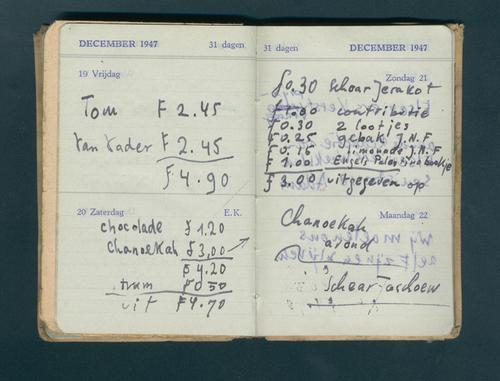 DECEMBER 1947 31 dagen
19 Vrijdag
Tom F 2.45
Van Vader F 2.45
F 4.90
20 Zaterdag E.K.
chocolade f 1.20
Chanoekah f 3,00
F 4.20
tram F 0 50
uit F 4.70
31 dagen DECEMBER 1947
Zondag 21
f0.30 schaar Jerakot
f1.00 contributie
f0.30 2 lootjes
f0.25 gebak J.N.F
f0.15 limonade J.N.F
f 1.00 Engels Pales
f 3,00 uitgegeven op
Maandag 22
Chanoekah
avond